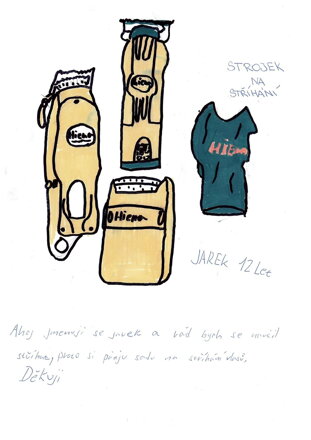 STROJEK
NA
STŘÍHÁNÍ
Hiena
Hiena
HIENA
Hiena
JAREK 12 Let
Ahoj jmenuji se jarek a rád bych se naučil
proto si přeju sadu na stříhání vlasů.
Děkuji